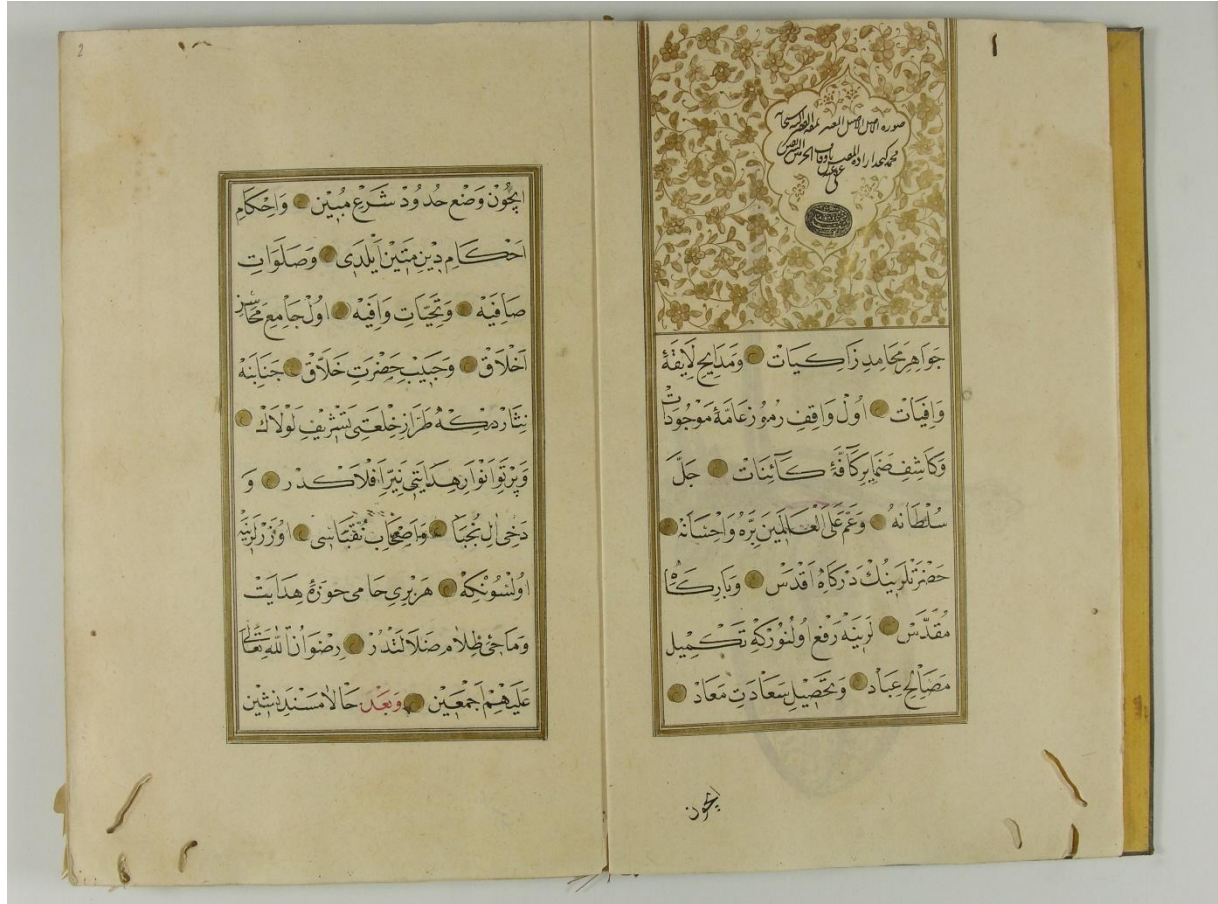 جَوَاهِرِ مَحَامِدِ زَاكِيَاتْ وَمَدَايِحِ لَايِقَهٔ
وَافِيَاتْ اول وَاقِفِ رمُوزِ عَامَّهٔ مَوْجُودَاتْ
وَكَاشِفِ ضَمَايِرِ كَافَّهٔ كَائِنَاتْ جَلَّ
سُلْطَانُهُ وَعَمَّ عَلَى الْعَالَمِينَ بِرُّهُ وَاِحْسَانُهُ
حَضْرَتْلَرِينِكْ دَرْكَاهِ اَقْدَسْ وَبَارِكَاهِ
مُقَدَّسْ لَرِينَه رَفْع اولُنُورْكِه تَكْمِيلِ
مَصَالِحِ عِبَادْ وَتَحْصِيلِ سَعَادَتِ مَعَادْ
ايچون
2
ايچُونْ وَضْعِ حدُودْ شَرْعِ مُبِينْ وَاِحْكَامِ
اَحْكَامِ دِينِ مَتِينْ اَيْلَدِى وَصَلَوَاتِ
صَافِيَهْ وَتَحِيَّاتِ وَافِيَهْ اول جَامِعِ مَحَاسِنِ
اَخْلَاقْ وَحَبِيبِ حَضْرَتِ خَلَّاقْ جَنَابِنَهْ
نِثَاردِرْكِهْ طَرَازِ خِلْعَتِى تَشْرِيفِ لَوْلَاكْ
وَپَرْتَوِ اَنْوَارِ هِدَايَتِى نَيِّرِ اَفْلَاكْدر وَ
دَخِى الِ نُجَبَا وَاَصْحَابِ نُقَبَاسِى اوزَرْلَرِينَه
اولْسُونْكِهْ هَرْبِرِى حَامِى حوزَهٔ هِدَايَتْ
وَمَاحِئ ظَلَامِ ضَلَالَتْدُرْ رِضْوَانُ اللّٰهِ تَعَالٰى
عَلَيْهِمْ اَجْمَعِينْ وَبَعْد حَالَا مَسْنَدنِشِينِ